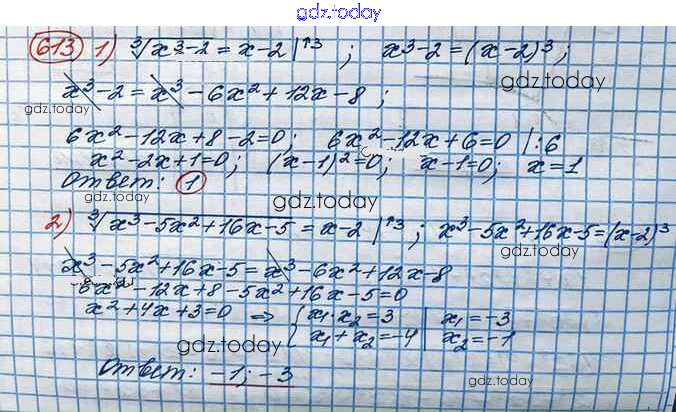 gdz.today
613 1) ∛(x³-2) = x-2 |↑3 ; x³-2=(x-2)³;
gdz.today
x³-2 = x³-6x²+12x-8;
gdz.today gdz.today
6x²-12x+8-2=0; 6x²-12x+6=0 |:6
x²-2x+1=0; (x-1)²=0; x-1=0; x=1
Ответ: 1
gdz.today
2) ∛(x³-5x²+16x-5) = x-2 |↑3 ; x³-5x²+16x-5=(x-2)³
gdz.today
x³-5x²+16x-5=x³-6x²+12x-8
gdz.today
6x²-12x+8-5x²+16x-5=0
x²+4x+3=0 ⇒ { x₁·x₂=3 | x₁=-3
x₁+x₂=-4 | x₂=-1
gdz.today
Ответ: -1; -3
gdz.today